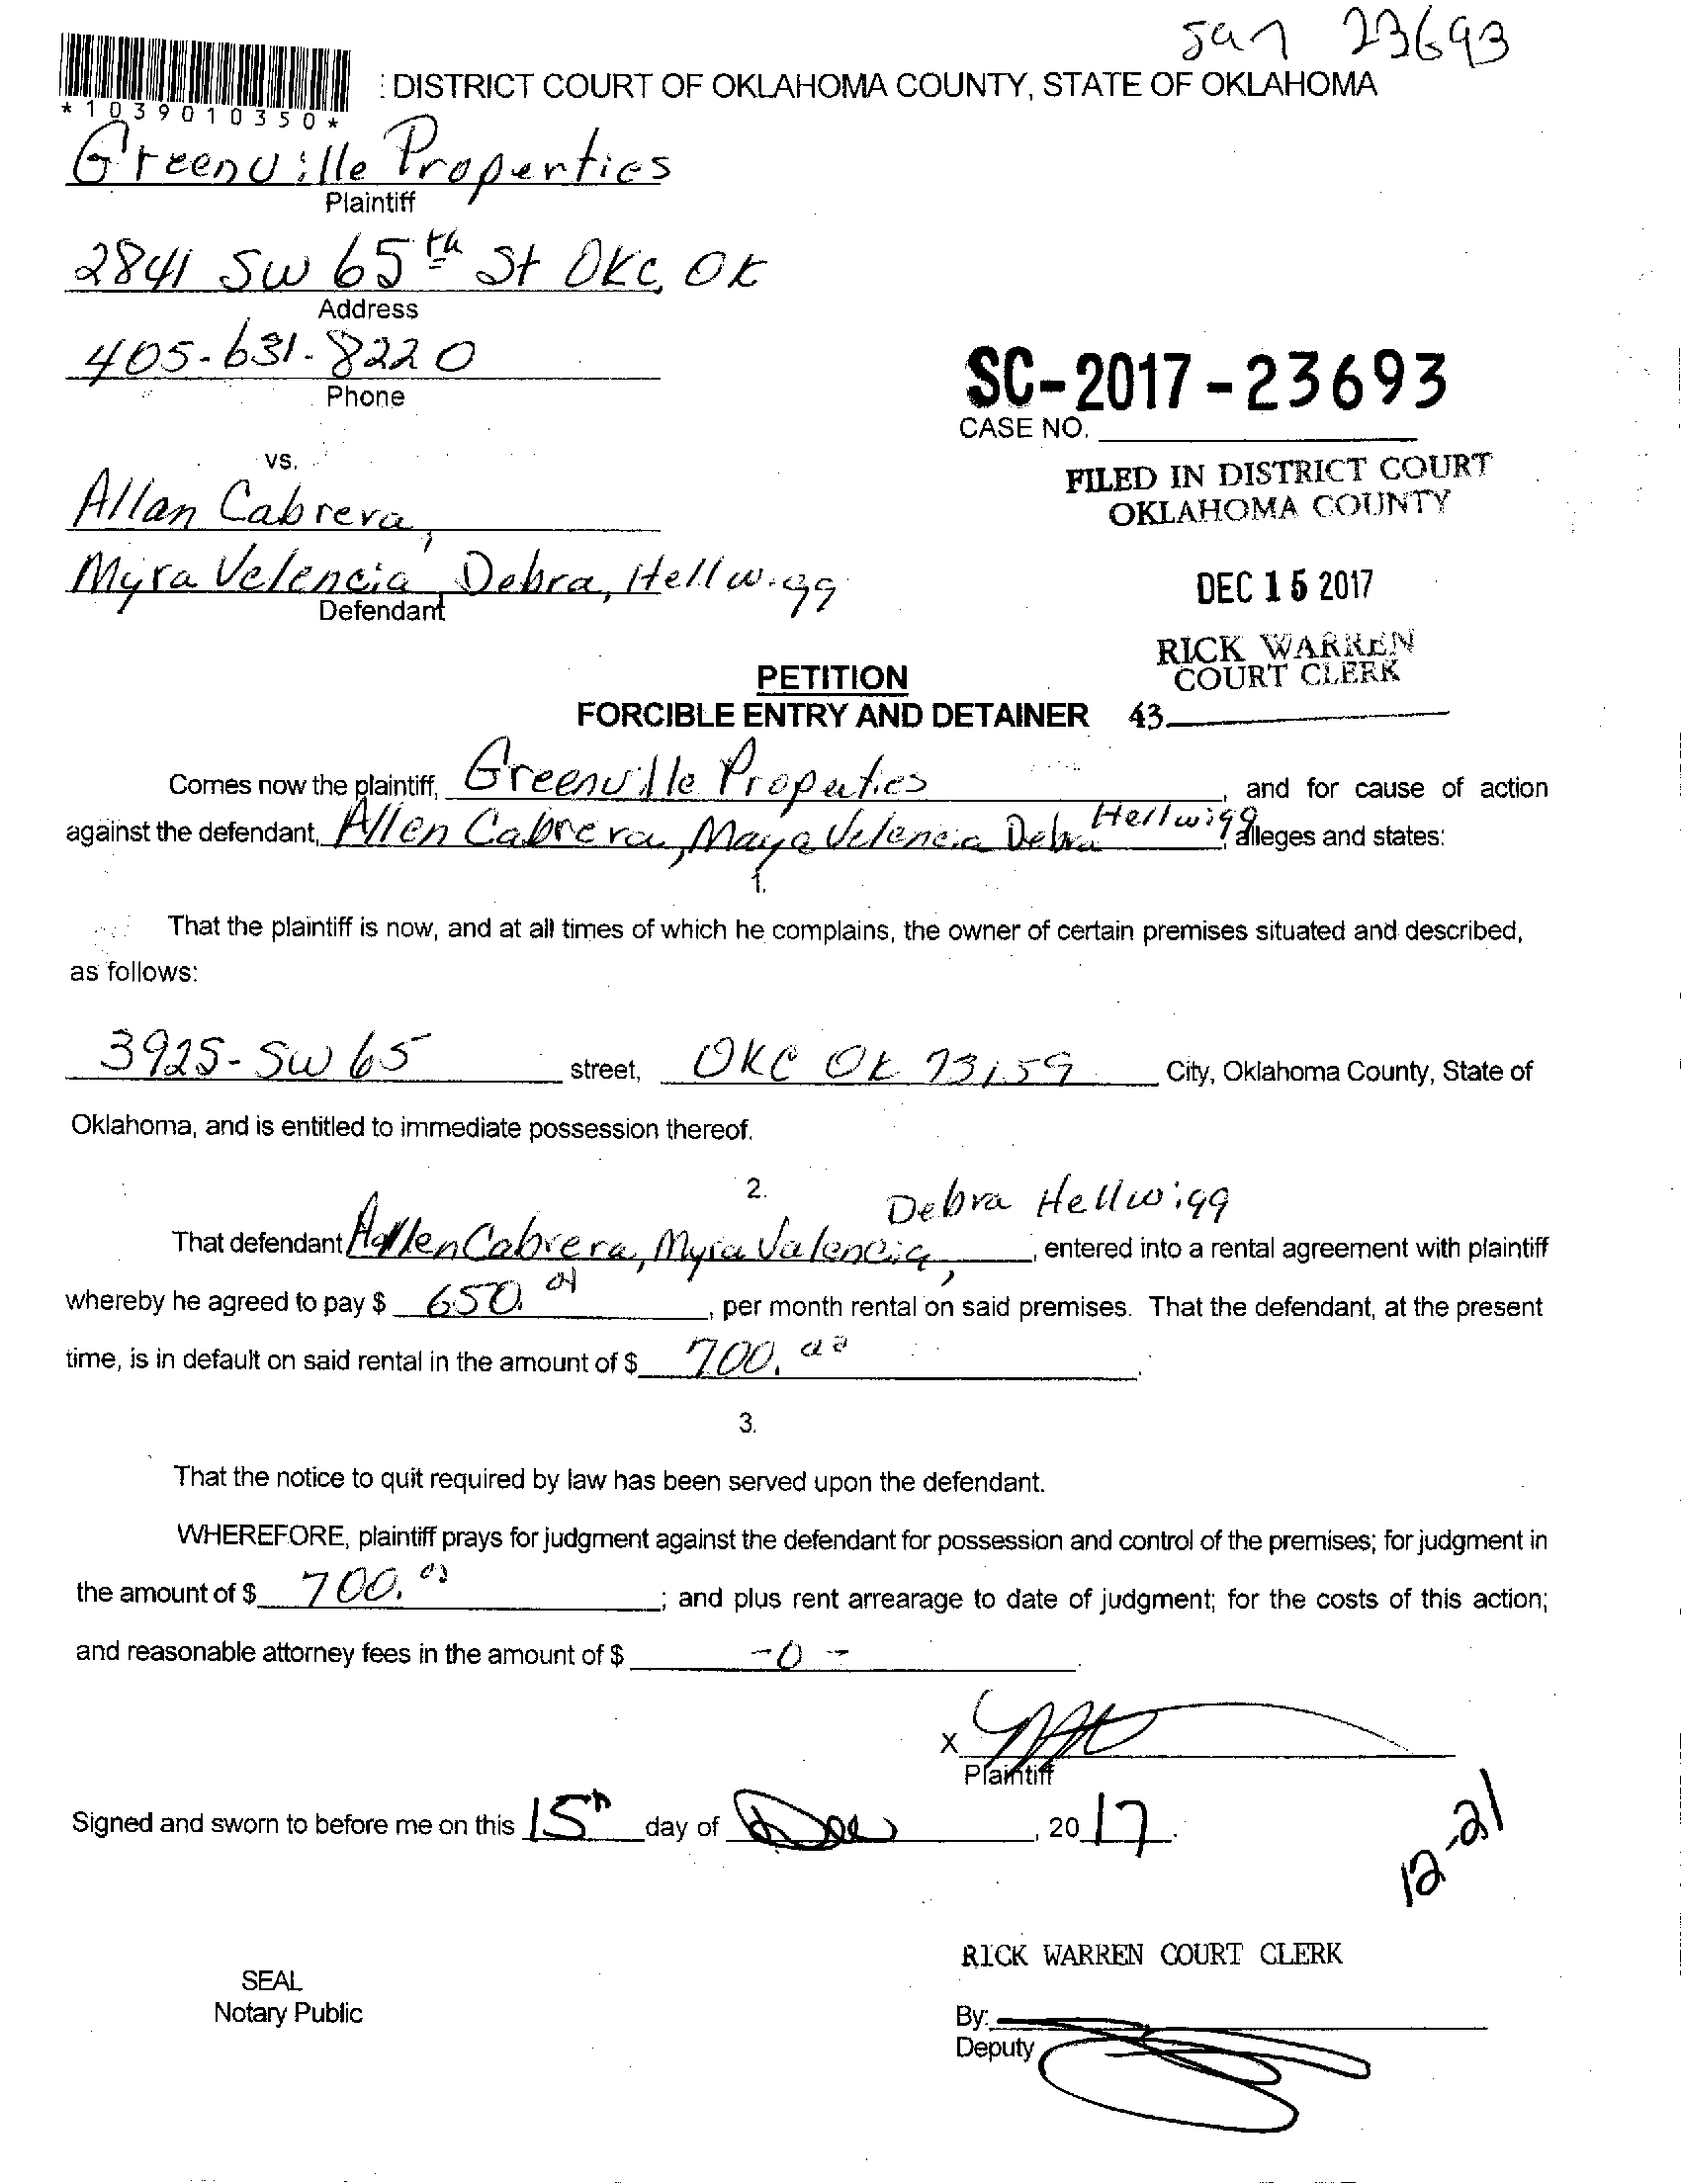 san 23693
: DISTRICT COURT OF OKLAHOMA COUNTY, STATE OF OKLAHOMA
*1039010350*
Greenville Properties
Plaintiff
2841 SW 65th St OKC, OK
Address
405-631-8220
Phone
SC-2017-23693
CASE NO.
vs.
FILED IN DISTRICT COURT
OKLAHOMA COUNTY
Allan Cabrera,
Myra Velencia Debra, Hellwigg
Defendant
DEC 15 2017
RICK WARREN
COURT CLERK
PETITION
FORCIBLE ENTRY AND DETAINER 43
Comes now the plaintiff, Greenville Properties, and for cause of action
against the defendant, Allen Cabrera, Maya Velencia Debra Hellwigg, alleges and states:
1.
That the plaintiff is now, and at all times of which he complains, the owner of certain premises situated and described,
as follows:
3925-SW 65 street, OKC OK 73159 City, Oklahoma County, State of
Oklahoma, and is entitled to immediate possession thereof.
2.
Debra Hellwigg
That defendant Allen Cabrera, Myra Valencia, , entered into a rental agreement with plaintiff
whereby he agreed to pay $ 650.00, per month rental on said premises. That the defendant, at the present
time, is in default on said rental in the amount of $ 700.00.
3.
That the notice to quit required by law has been served upon the defendant.
WHEREFORE, plaintiff prays for judgment against the defendant for possession and control of the premises; for judgment in
the amount of $ 700.00; and plus rent arrearage to date of judgment; for the costs of this action;
and reasonable attorney fees in the amount of $ -0-.
X
Plaintiff
Signed and sworn to before me on this 15th day of Dec, 2017.
12-21
RICK WARREN COURT CLERK
SEAL
Notary Public
By:
Deputy